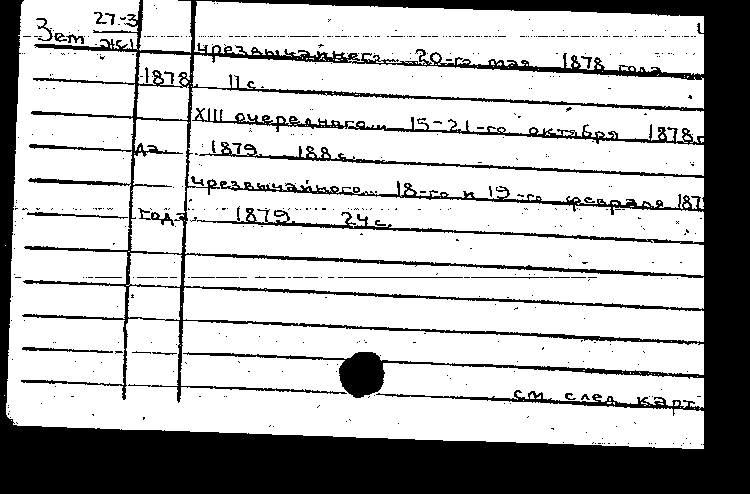 27-3
Зем жс1
чрезвычайнего... 20-го мая 1878 года
1878. 11 с.
XIII очередного... 15-21-го октября 1878 г
да 1879. 188 с.
чрезвычайного... 18-го и 19-го февраля 187
года. 1879. 24 с.
см. след. карт.